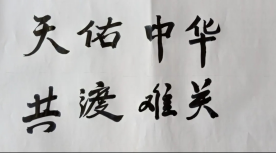 天佑中华
共渡难关